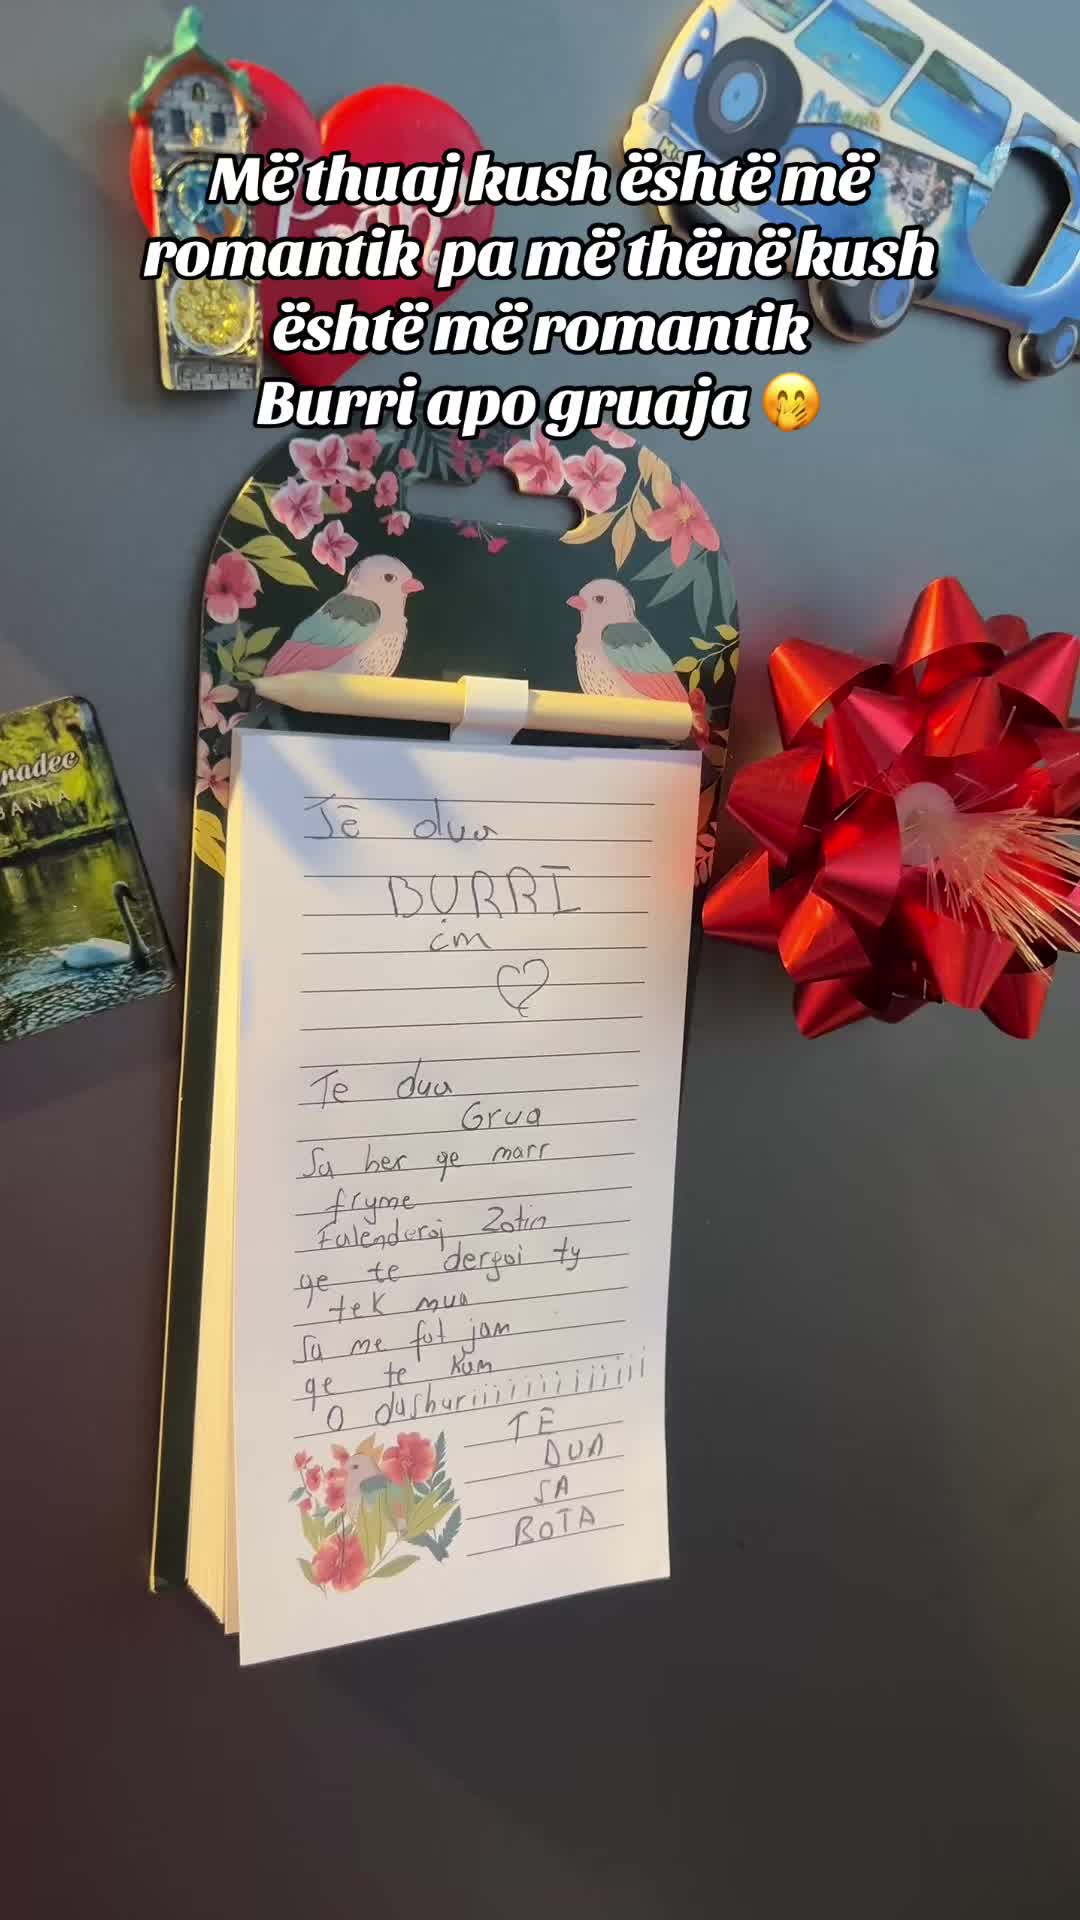 Më thuaj kush është më
romantik pa më thënë kush
është më romantik
Burri apo gruaja 🤭
radec
BANIA
Të dua
BURRI
im
Te dua
Grua
Sa her qe marr
fryme
Falenderoj Zotin
qe te dergoi ty
tek mua
Sa me fat jam
qe te kam
O dashuriiiiiiiiiiiii
TË
DUA
SA
BOTA